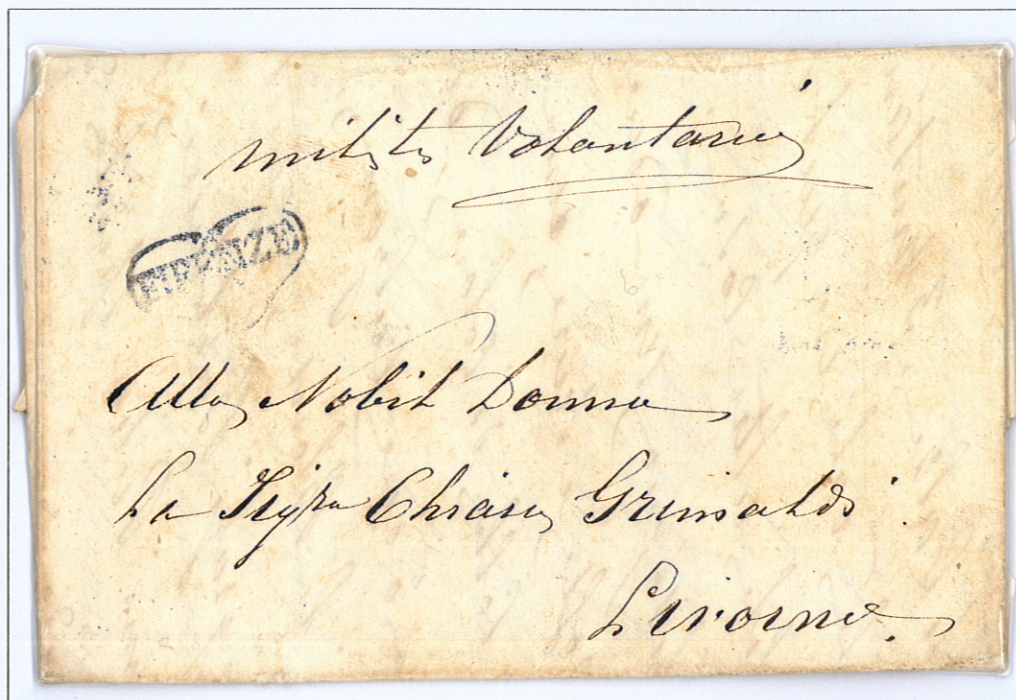 militi Volontarii
FIRENZE
Alla Nobil Donna
La Sigra Chiara Grimaldi
Livorno.